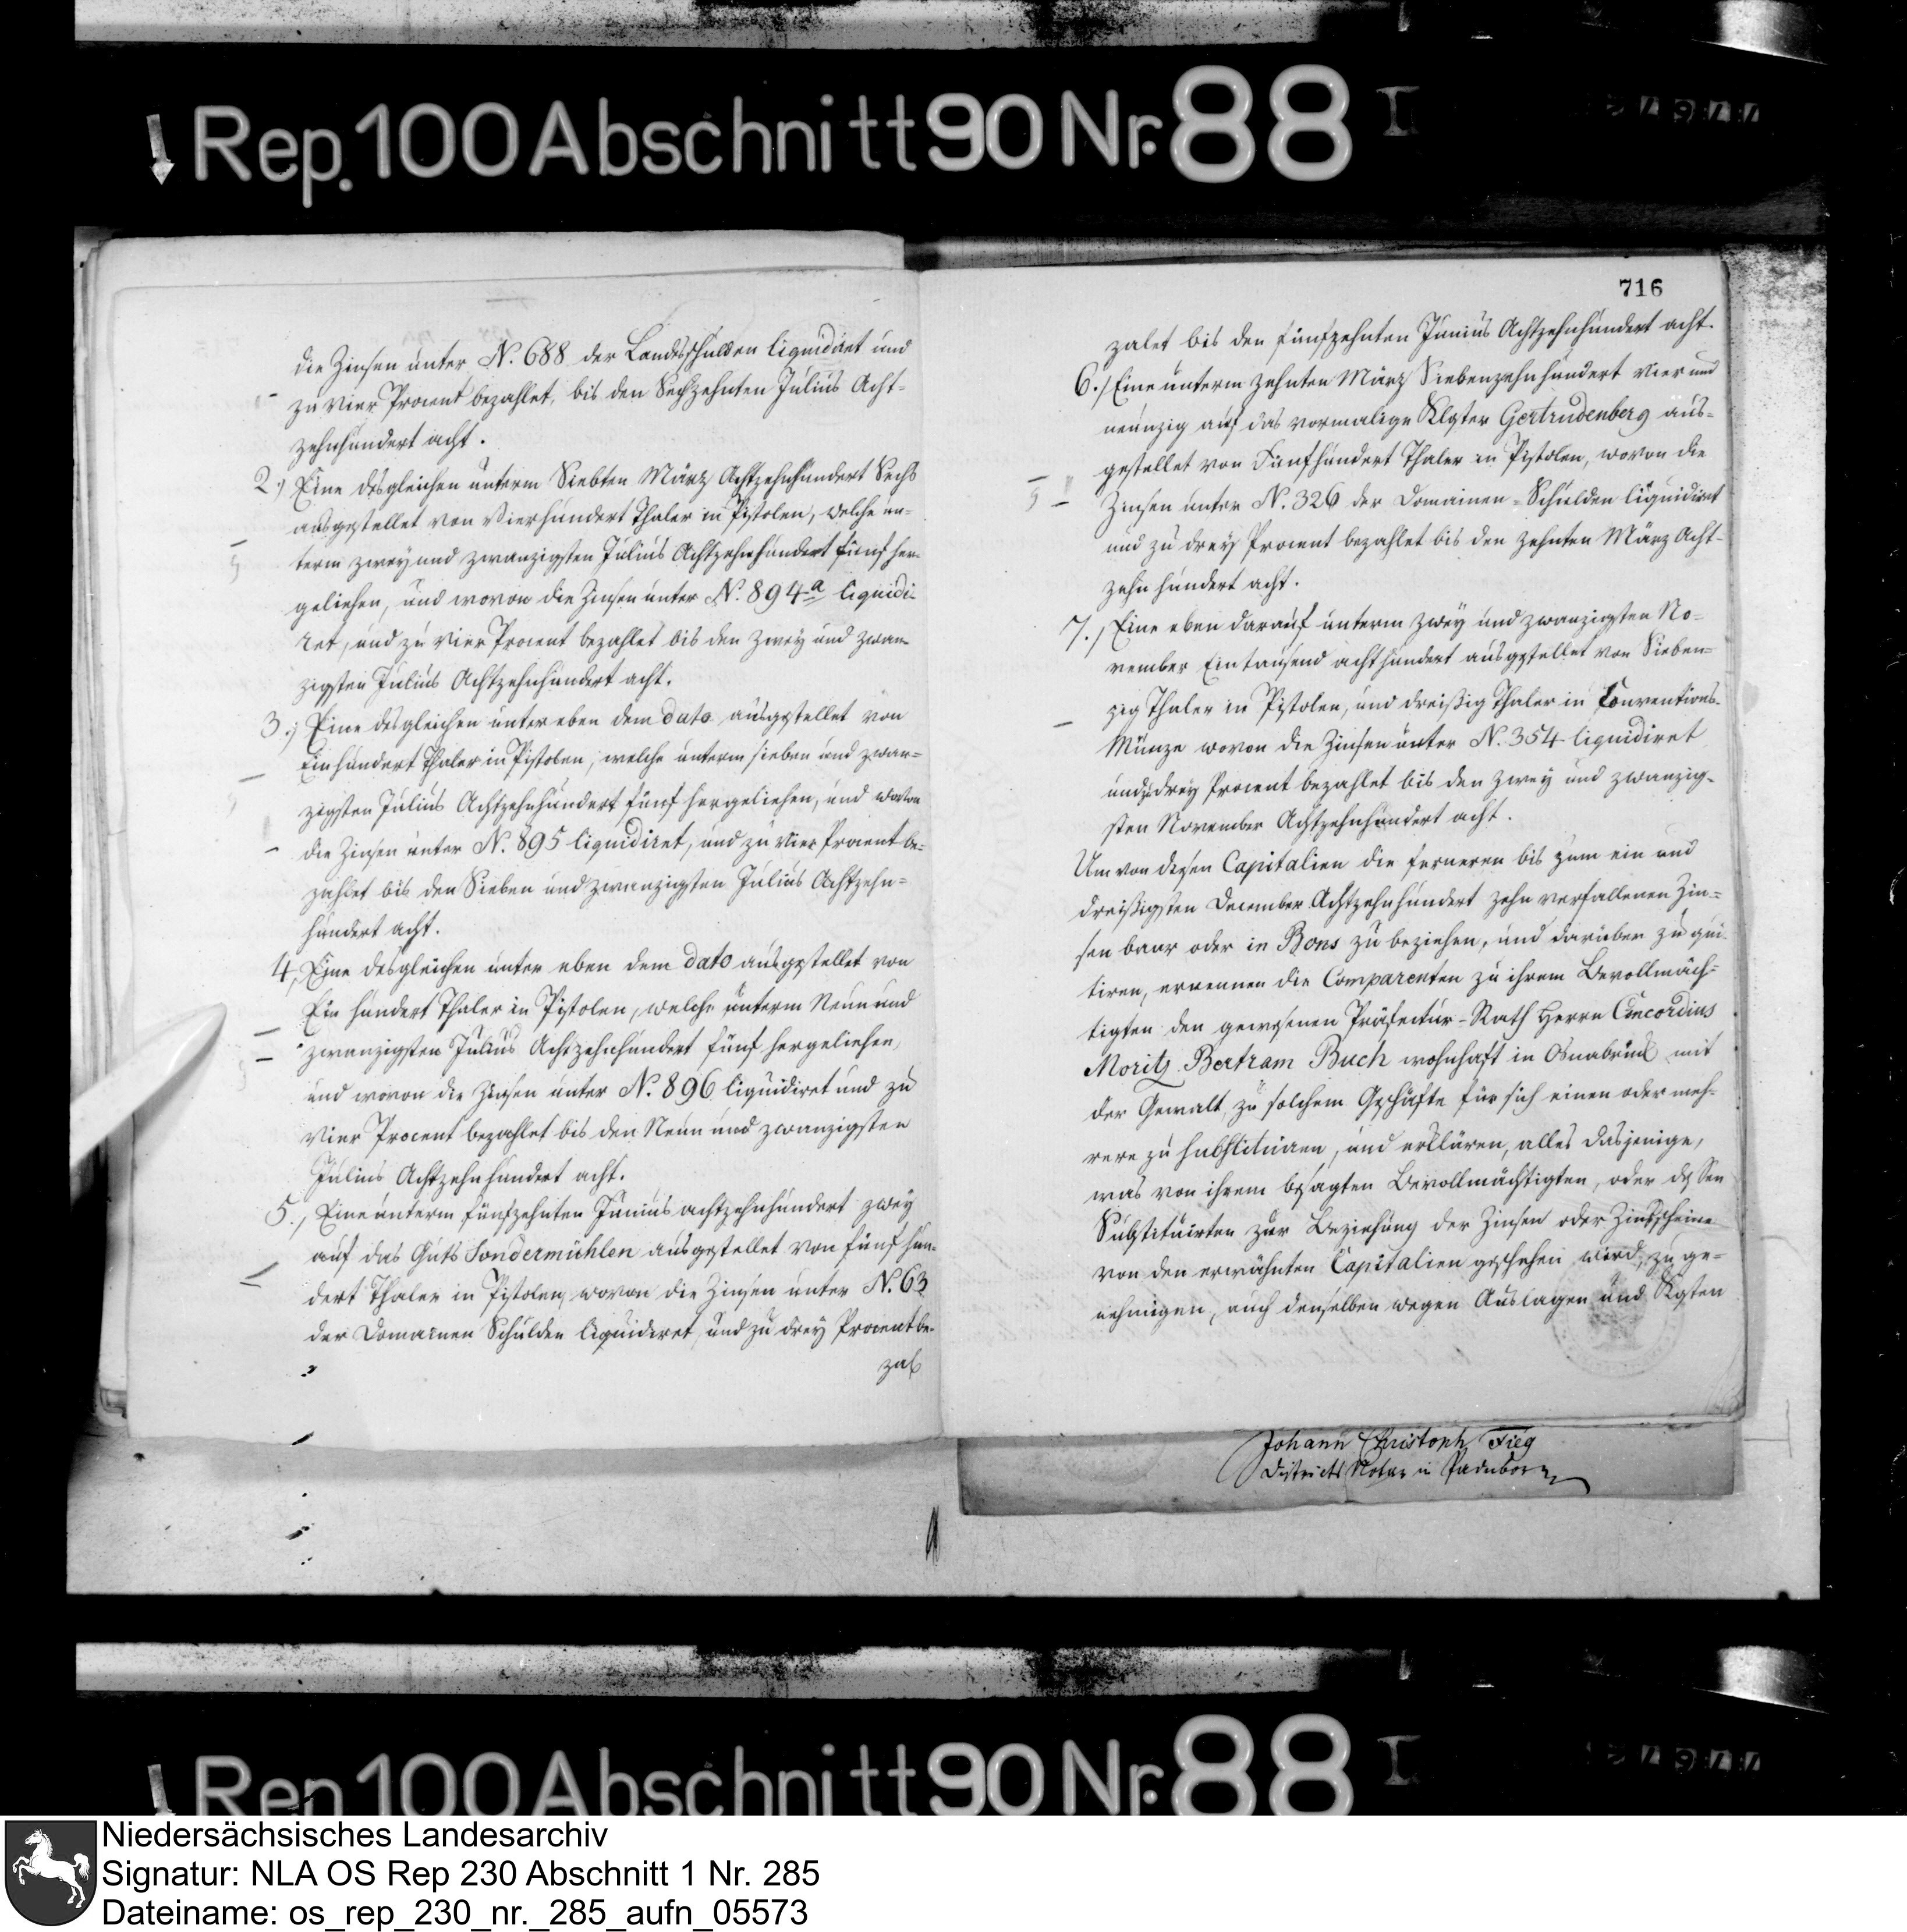 Rep. 100 Abschnitt 90 Nr. 88 I
die Zinsen unter N. 688 der Landesschulden liquidiret und
zu vier Procent bezahlet, bis den Sechzehnten Julius Acht-
zehnhundert acht.
2.) Eine desgleichen unterm Siebten März Achtzehnhundert Sechs
ausgestellet von Vierhundert Thaler in Pistolen, welche un-
term zwey und zwanzigsten Julius Achtzehnhundert fünf her-
geliehen, und wovon die Zinsen unter N. 894a liquidi-
ret, und zu vier Procent bezahlet bis den zwey und zwan-
zigsten Julius Achtzehnhundert acht.
3.) Eine desgleichen unter eben dem dato ausgestellet von
Einhundert Thaler in Pistolen, welche unterm sieben und zwan-
zigsten Julius Achtzehnhundert fünf hergeliehen, und wovon
die Zinsen unter N. 895 liquidiret, und zu vier Procent be-
zahlet bis den Sieben und zwanzigsten Julius Achtzehn-
hundert acht.
4, Eine desgleichen unter eben dem dato ausgestellet von
Ein hundert Thaler in Pistolen, welche unterm Neun und
zwanzigsten Julius Achtzehnhundert fünf hergeliehen,
und wovon die Zinsen unter N. 896 liquidiret und zu
Vier Procent bezahlet bis den Neun und zwanzigsten
Julius Achtzehnhundert acht.
5., Eine unterm fünfzehnten Junius achtzehnhundert zwey
auf das Guts Sondermühlen ausgestellet von fünf hun-
dert Thaler in Pistolen, wovon die Zinsen unter N. 63
der Domainen Schulden liquidiret, und zu drey Procent be-
zal
716
zalet bis den fünfzehnten Junius Achtzehnhundert acht.
6., Eine unterm zehnten März Siebenzehnhundert vier und
neunzig auf das vormalige Kloster Gertrudenberg aus-
gestellet von Fünfhundert Thaler in Pistolen, wovon die
Zinsen unter N. 326 der Domainen-Schulden liquidiret
und zu drey Procent bezahlet bis den zehnten März Acht-
zehn hundert acht.
7., Eine eben darauf unterm zwey und zwanzigsten No-
vember Eintausend achthundert ausgestellet von Sieben-
zig Thaler in Pistolen, und dreißig Thaler in Conventions-
Münze wovon die Zinsen unter N. 354 liquidiret
und zu drey Procent bezahlet bis den zwey und zwanzig-
sten November Achtzehnhundert acht.
Um von diesen Capitalien die ferneren bis zum ein und
dreißigsten December Achtzehnhundert zehn verfallenen Zin-
sen baar oder in Bons zu beziehen, und darüber zu qui-
tiren, ernennen die Comparenten zu ihrem Bevollmäch-
tigten den gewesenen Präfectur-Rath Herrn Concordius
Moritz Bertram Buch wohnhaft in Osnabrück mit
der Gewalt, zu solchem Geschäfte für sich einen oder meh-
rere zu substituiren, und erklären, alles dasjenige,
was von ihrem besagten Bevollmächtigten, oder dessen
Substituirten zur Beziehung der Zinsen oder Zinsscheine
von den erwähnten Capitalien geschehen wird, zu ge-
nehmigen, auch denselben wegen Auslagen und Kosten
Johann Christoph Fieg
Districts Notar in Paderborn
Rep 100 Abschnitt 90 Nr. 88 I
Niedersächsisches Landesarchiv
Signatur: NLA OS Rep 230 Abschnitt 1 Nr. 285
Dateiname: os_rep_230_nr._285_aufn_05573